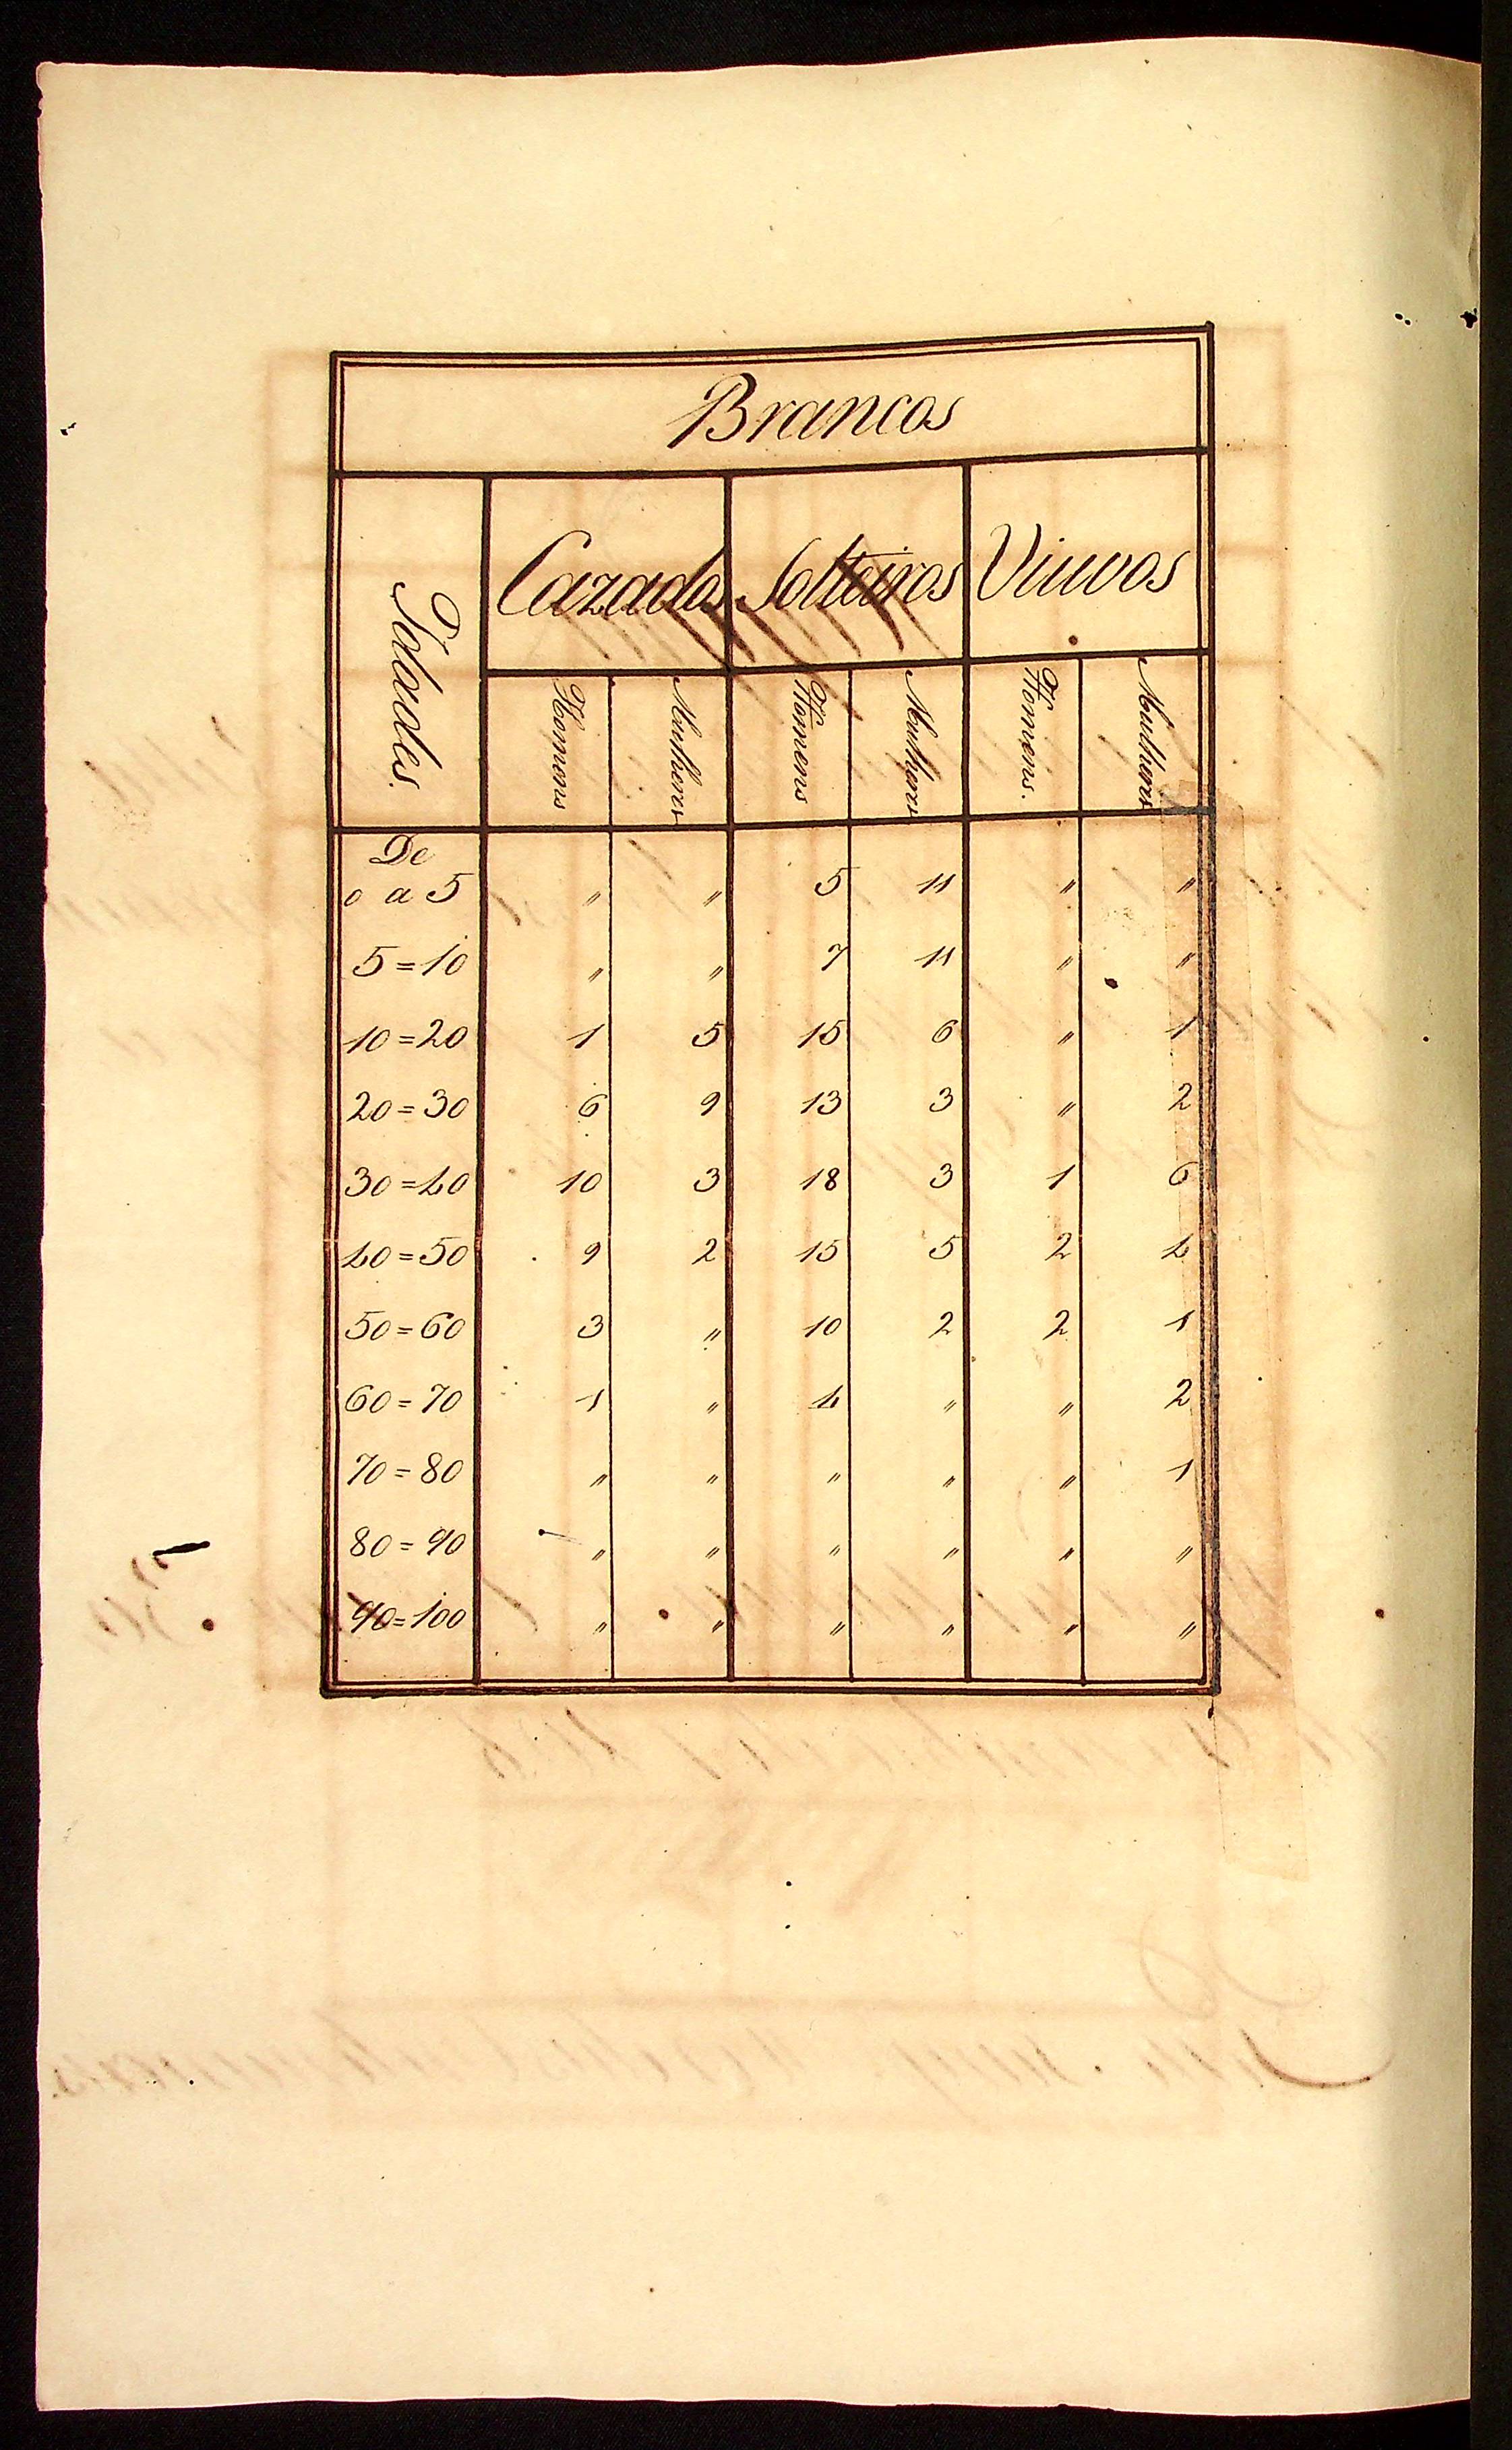 Brancos
Idades. Cazados Solteiros Viuvos
Homens Mulheres Homens Mulheres Homens. Mulheres
De
0 a 5 " " 5 11 " "
5=10 " " 7 11 " "
10=20 1 5 15 6 " 1
20=30 6 9 13 3 " 2
30=40 10 3 18 3 1 6
40=50 9 2 15 5 2 4
50=60 3 " 10 2 2 1
60=70 1 " 4 " " 2
70=80 " " " " " 1
80=90 " " " " " "
90=100 " " " " " "